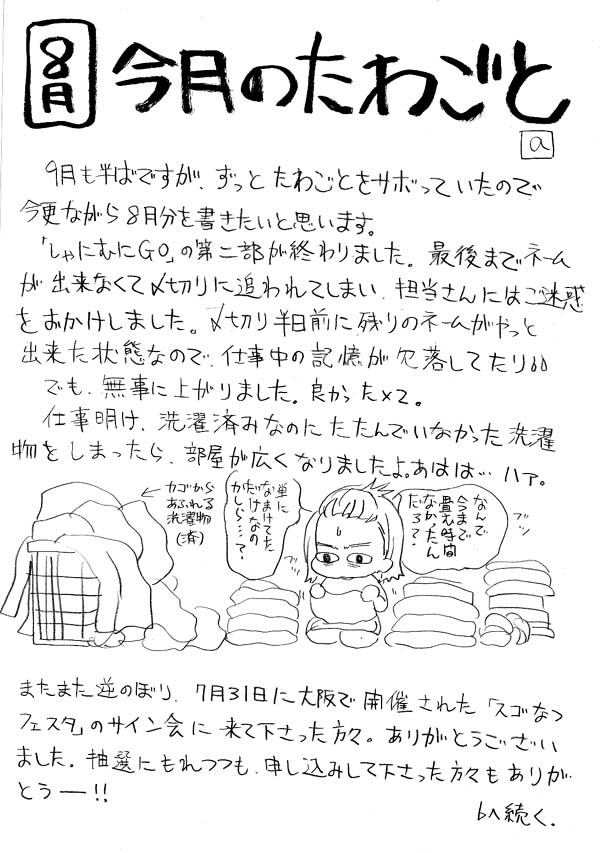 8月 今月のたわごと
a
9月も半ばですが、ずっとたわごとをサボっていたので
今更ながら8月分を書きたいと思います。
「しゃにむにGO」の第二部が終わりました。最後までネーム
が出来なくて〆切りに追われてしまい、担当さんにはご迷惑
をおかけしました。〆切り半日前に残りのネームがやっと
出来た状態なので、仕事中の記憶が欠落してたり〃
でも、無事に上がりました。良かった×2。
仕事明け、洗濯済みなのにたたんでいなかった洗濯
物をしまったら、部屋が広くなりましたよ。あはは…ハァ。
なんで
今まで
畳む時間
なかったん
だろ?
ブツ
単に
なまけてた
だけなの
かしら…?
カゴから
あふれる
洗濯物
(済)
またまた逆のぼり、7月31日に大阪で開催された「スゴなつ
フェスタ」のサイン会に来て下さった方々。ありがとうござい
ました。抽選にもれつつも、申し込みして下さった方々もありが
とうー!!
bへ続く.